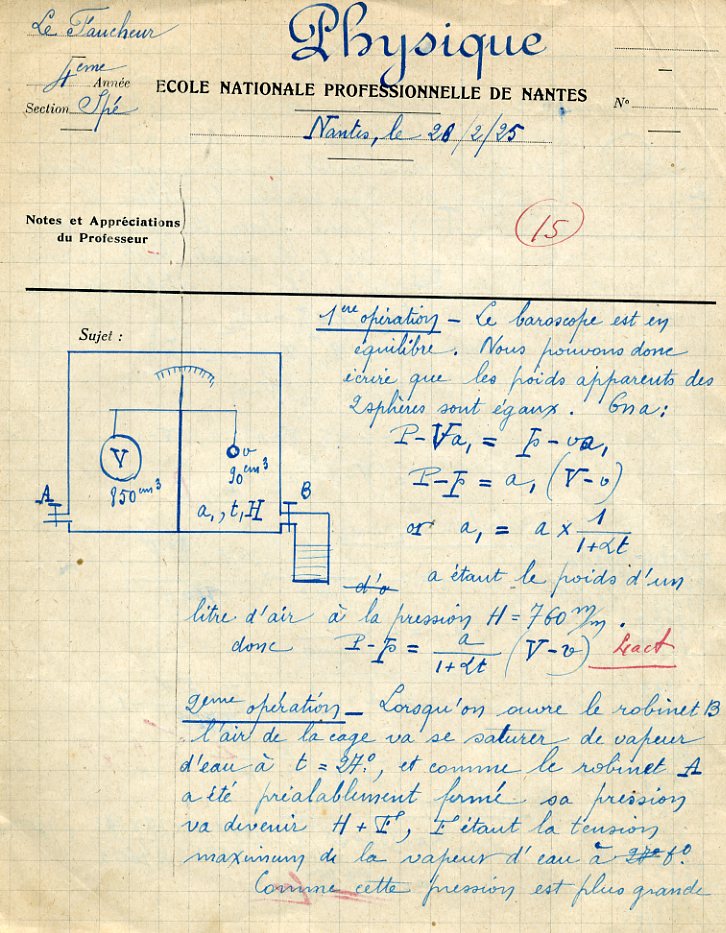 Physique
Le Faucheur
4ème Année
ECOLE NATIONALE PROFESSIONNELLE DE NANTES
Section Spé
N°
Nantes, le 28/2/25
Notes et Appréciations
du Professeur
15
Sujet :
1ère opération - Le baroscope est en
équilibre. Nous pouvons donc
écrire que les poids apparents des
2 sphères sont égaux. On a :
P - Va₁ = p - va₁
P - p = a₁ (V - v)
or a₁ = a × 1/(1+αt)
V
850 cm³
v
90 cm³
A
a₁, t, H
B
d'o a étant le poids d'un
litre d'air à la pression H = 760 m/m.
donc P - p = a/(1+αt) (V - v) Exact
2ème opération - Lorsqu'on ouvre le robinet B
l'air de la cage va se saturer de vapeur
d'eau à t = 27°, et comme le robinet A
a été préalablement fermé sa pression
va devenir H + F, F étant la tension
maximum de la vapeur d'eau à 27° t°.
Comme cette pression est plus grande